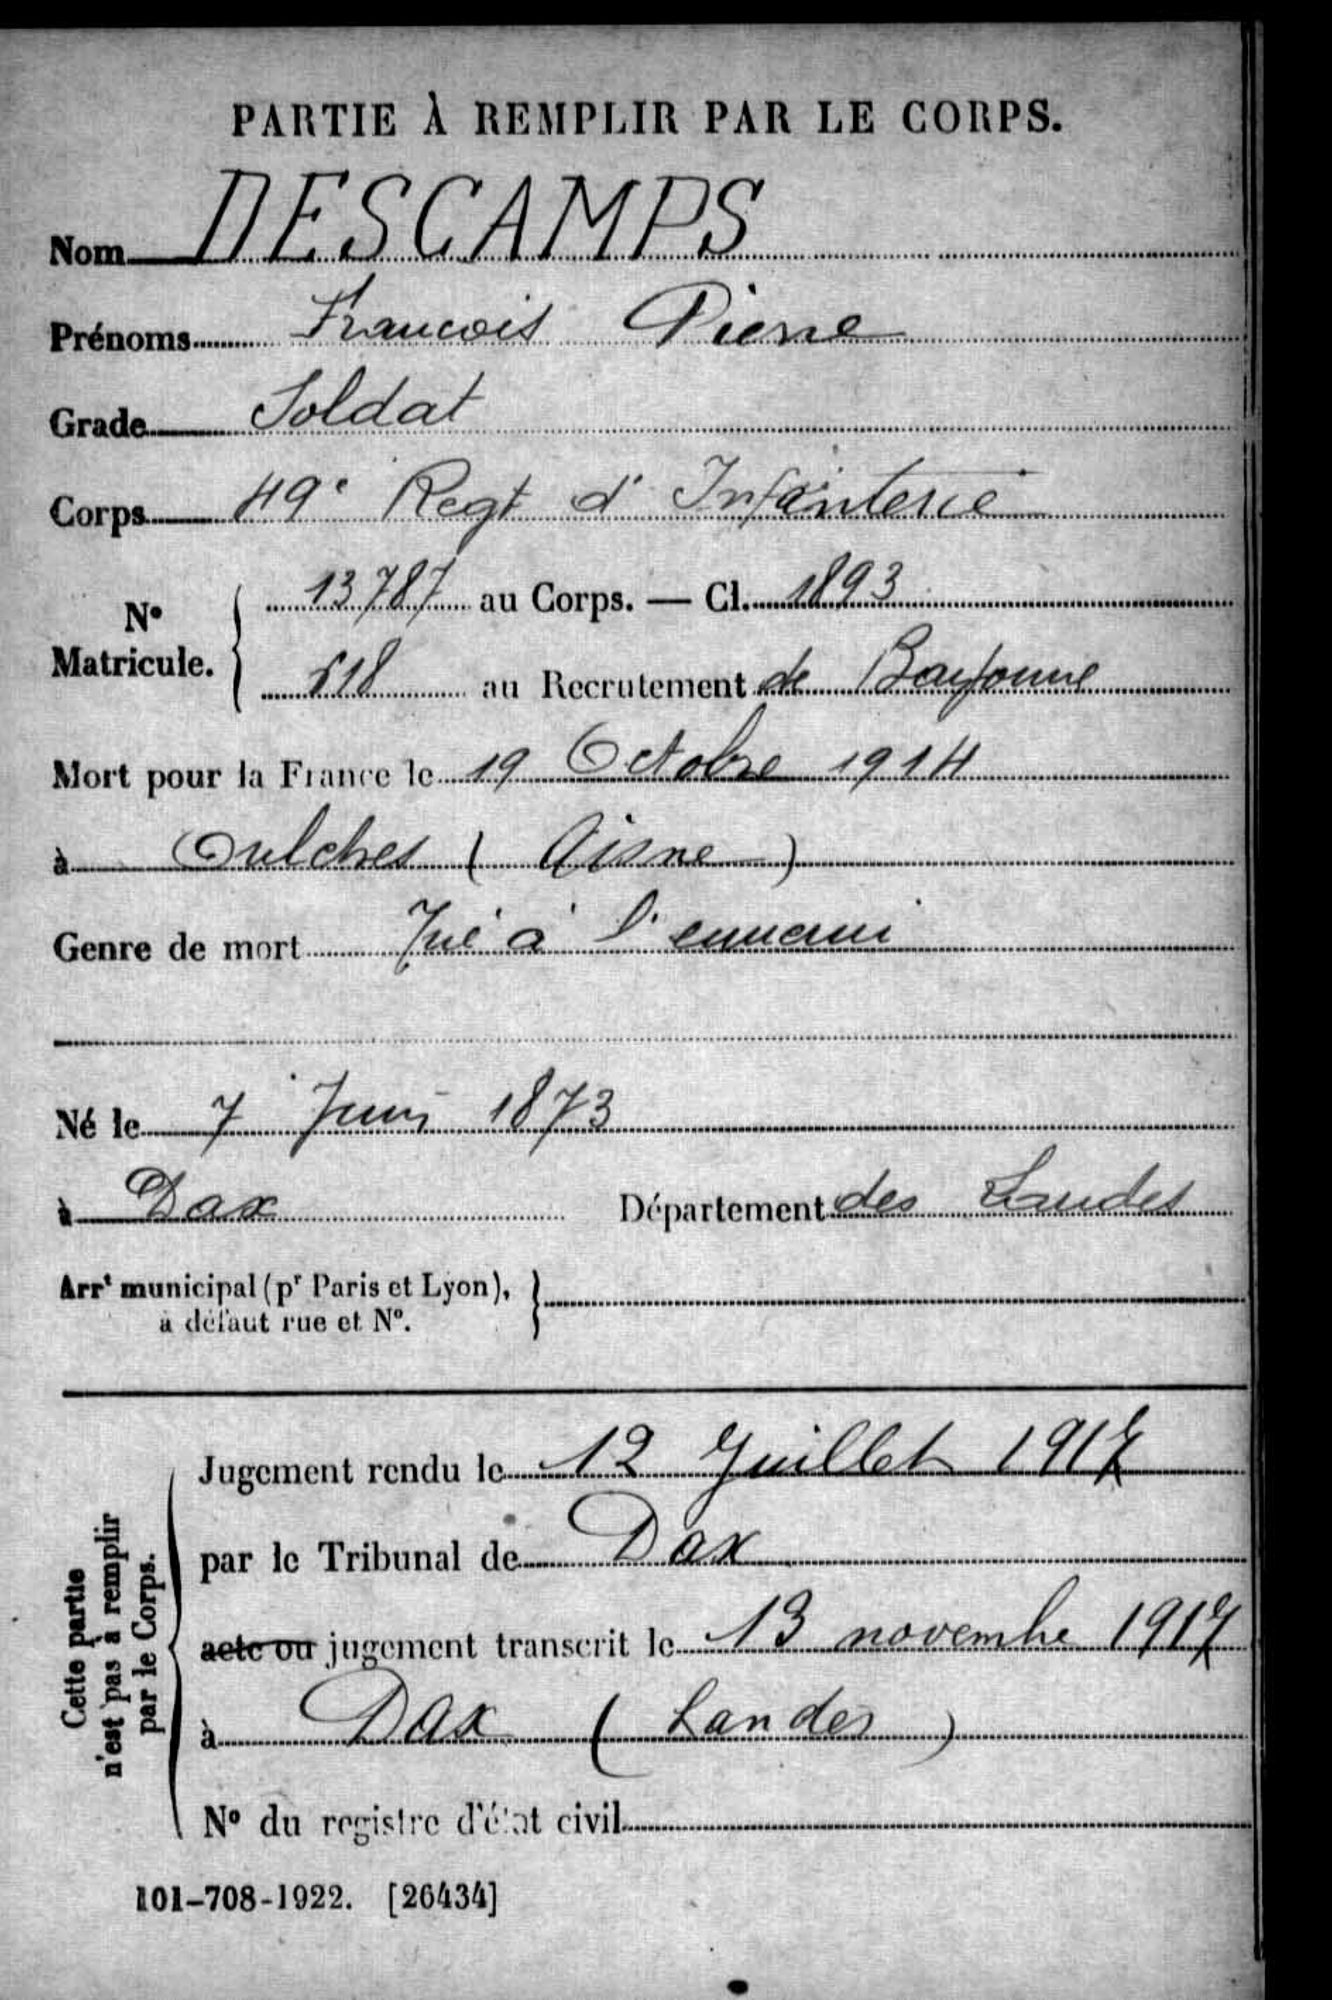 PARTIE À REMPLIR PAR LE CORPS.
Nom DESCAMPS
Prénoms François Pierre
Grade Soldat
Corps 49e Regt d'Infanterie
N° Matricule. 13787 au Corps. — Cl. 1893
618 au Recrutement de Bayonne
Mort pour la France le 19 Octobre 1914
à Oulches (Aisne)
Genre de mort Tué à l'ennemi
Né le 7 Juin 1873
à Dax Département des Landes
Arrt municipal (pr Paris et Lyon),
à défaut rue et N°.
Cette partie
n'est pas à remplir
par le Corps.
Jugement rendu le 12 Juillet 1917
par le Tribunal de Dax
acte ou jugement transcrit le 13 novembre 1917
à Dax (Landes)
N° du registre d'état civil
101-708-1922. [26434]